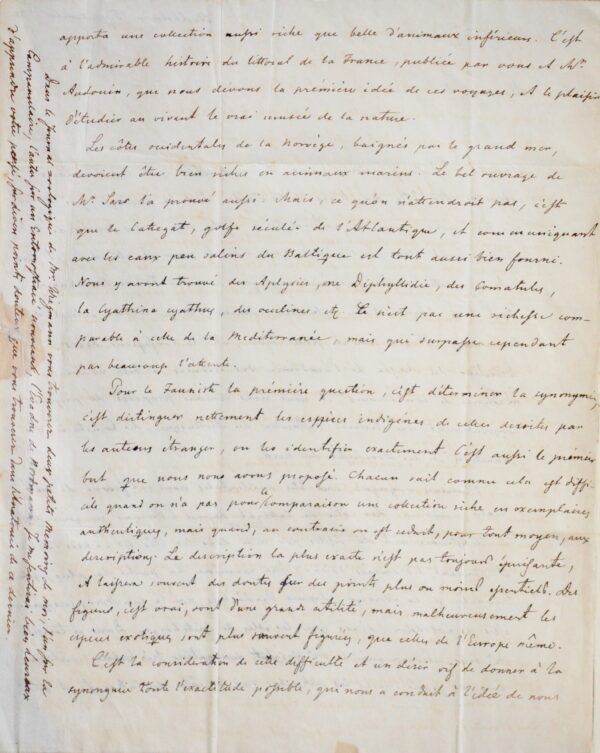 apporta une collection aussi riche que belle d'animaux inférieurs. C'est
à l'admirable histoire du littoral de la France, publiée par vous & Mr.
Audouin, que nous devons la première idée de ces voyages, & le plaisir
d'étudier au vivant le vrai musée de la nature.
Les côtes occidentales de la Norvège, baignés par le grand mer,
devoient être bien riches en animaux marins. Le bel ouvrage de
Mr. Sars l'a prouvé aussi. Mais, ce qu'on n'attendroit pas, c'est
que le Categat, golfe réculée de l'Atlantique, et communiquant
avec les eaux peu salins du Baltique est tout aussi bien fourni.
Nous y avons trouvé des Aplysies, une Diphyllidie, des Comatules,
la Cyathina cyathus, des oculines etc. Ce n'est pas une richesse com-
parable à celle de la Mediterranée, mais qui surpasse cependant
par beaucoup l'attente.
Pour le Fauniste la première question, c'est déterminer la synonymie,
c'est distinguer nettement les espèces indigènes de celles decrites par
les auteurs étranger, ou les identifier exactement. C'est aussi le prémier
but que nous nous avons proposé. Chacun sait comme cela est diffi-
cile quand on n'a pas pour le comparaison une collection riche en exemplaires
authentiques, mais quand, au contraire on est reduit, pour tout moyen, aux
descriptions. La description la plus exacte n'est pas toujours épuisante,
& laissera souvent des doutes sur des points plus ou moins essentiels. Des
figures, c'est vrai, sont d'une grande utilité, mais malheureusement les
espèces exotiques sont plus souvent figurées, que celles de l'Europe même.
C'est la considération de cette difficulté et un désir vif de donner à la
synonymie toute l'exactitude possible, qui nous a conduit à l'idée de nous
Dans le Journal zoologique de Mr. Wiegmann vous trouverez deux petits Memoires de moi, l'un sur la
Campanulaire, l'autre sur un
d'apprendre votre
que vous trouverez dans
de ce dernier.